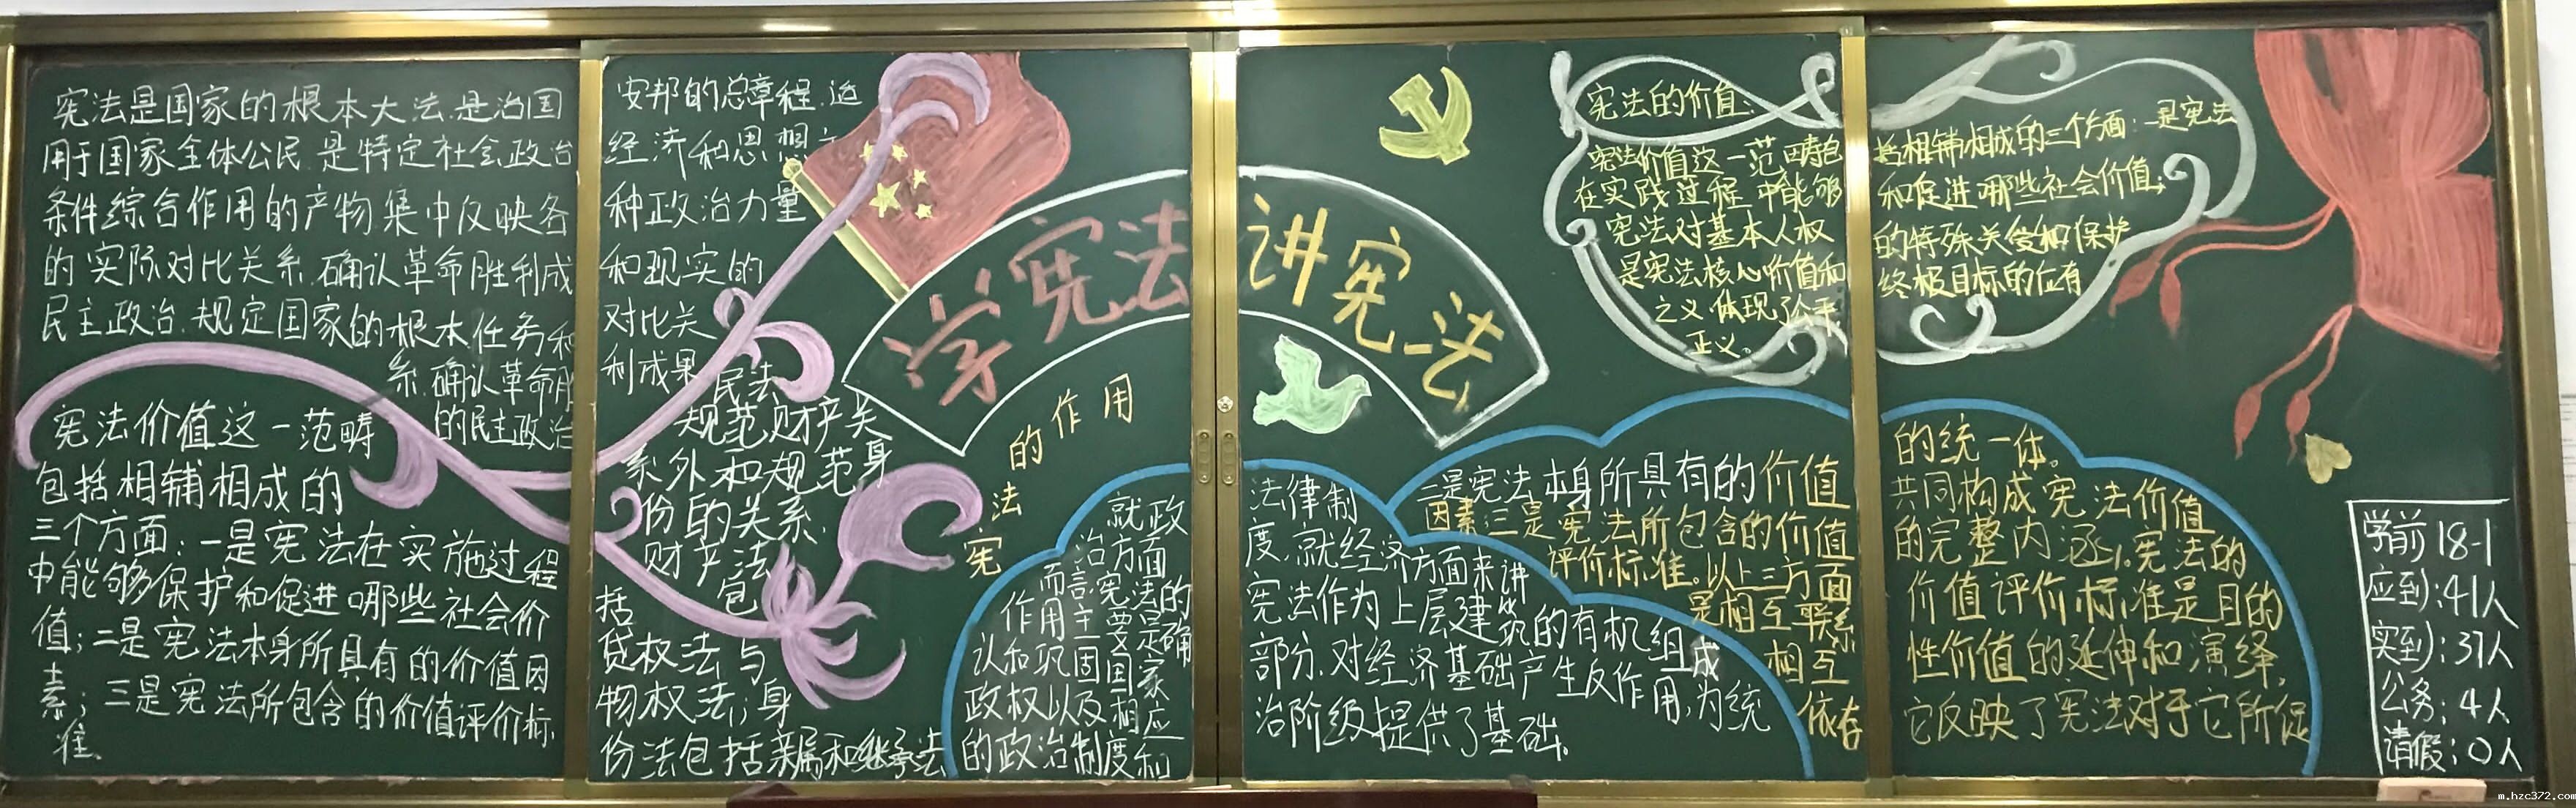 宪法是国家的根本大法.是治国
用于国家全体公民.是特定社会政治
条件综合作用的产物.集中反映各
的实际对比关系.确认革命胜利成
民主政治.规定国家的根本任务和
系.确认革命胜
的民主政治
宪法价值这一范畴
包括相辅相成的
三个方面:一是宪法在实施过程
中能够保护和促进哪些社会价
值;二是宪法本身所具有的价值因
素;三是宪法所包含的价值评价标
准.
安邦的总章程.适
经济和思想
种政治力量
和现实的
对比关
利成果
民法
规范财产关
系外和规范身
份的关系.
财产法
包
括
贷权法与
物权法;身
份法包括亲属和继承法
学宪法 讲宪法
宪法的作用
就政
治方面
而言,宪法的
作用主要是确
认和巩固国家
政权以及相应
的政治制度和
法律制
度.就经济方面来讲
宪法作为上层建筑的有机组成
部分.对经济基础产生反作用,为统
治阶级提供了基础.
宪法的价值:
宪法价值这一范畴包
在实践过程中能够
宪法对基本人权
是宪法核心价值和
之义.体现了公平
正义。
括相辅相成的三个方面:一是宪法
和促进哪些社会价值;
的特殊关爱和保护
终极目标的应有
二是宪法本身所具有的价值
因素;三是宪法所包含的价值
评价标准。以上三方面
是相互联系
相互
依存
的统一体。
共同构成宪法价值
的完整内涵.宪法的
价值评价标准是目的
性价值的延伸和演绎,
它反映了宪法对于它所促
学前18-1
应到:41人
实到:37人
公务:4人
请假:0人
m.hzc372.com